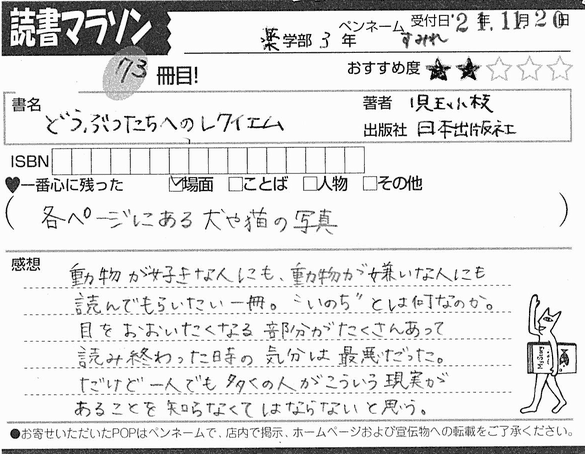 読書マラソン
薬学部 3 年 ペンネーム すみれ 受付日'21年.11月20日
73 冊目! おすすめ度 ★★☆☆☆
書名 どうぶつたちへのレクイエム
著者 児玉小枝
出版社 日本出版社
ISBN
♥一番心に残った ☑場面 □ことば □人物 □その他
(各ページにある犬や猫の写真)
感想
動物が好きな人にも、動物が嫌いな人にも
読んでもらいたい一冊。“いのち”とは何なのか。
目をおおいたくなる部分がたくさんあって
読み終わった時の気分は最悪だった。
だけど一人でも多くの人がこういう現実が
あることを知らなくてはならないと思う。
●お寄せいただいたPOPはペンネームで、店内で掲示、ホームページおよび宣伝物への転載をご了承ください。